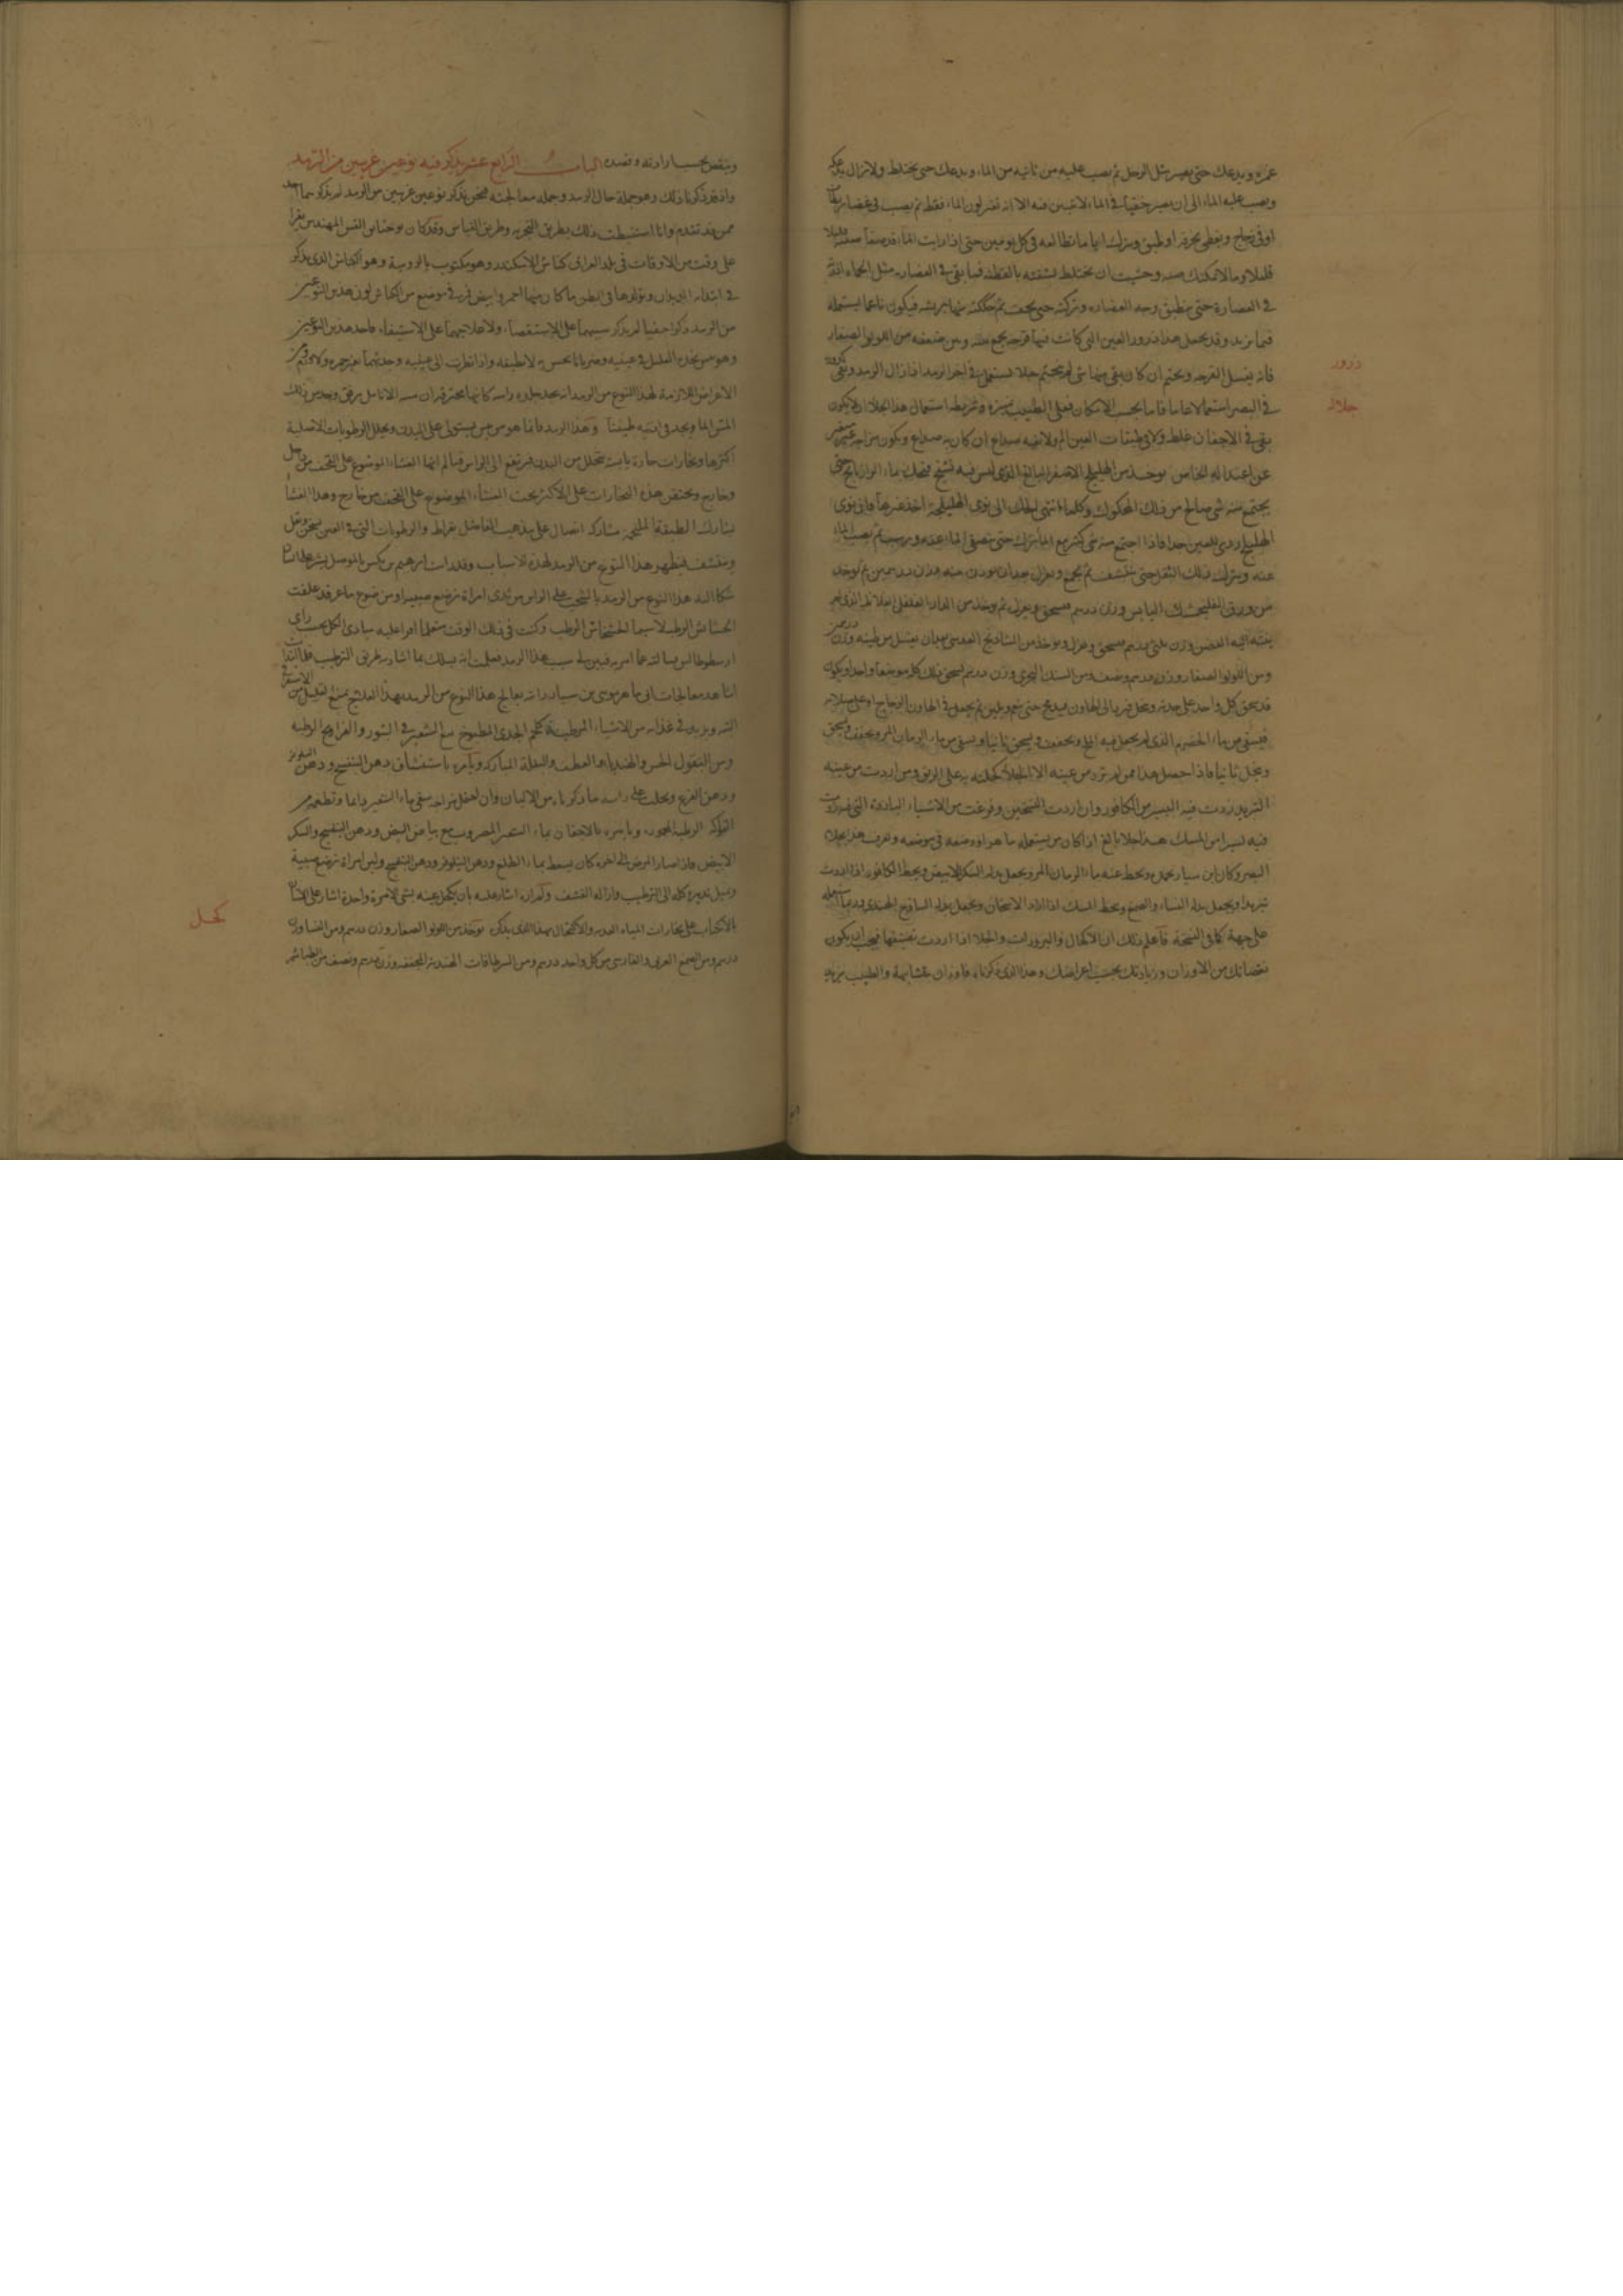 غمره ويدعك حتى يصير مثل الوحل ثم يصب عليه من ثانيه من الماء ويدعك حتى يختلط ولا يزال يدعك
ويصب عليه الماء الى ان يصير خفيا في الماء لا تتبين فيه الا انه تغير لون الماء فقط ثم يصب في غضاير
او في زجاج ويغطى بخرقه او طبق ويترك اياما تطالعه في كل يومين حتى اذا رايت الماء قد صفا
قليلا وما لا يمكنك صبه وخشيت ان يختلط نشفته بالقطنه فيما بقى في الغضاره مثل الحماه
في الغضارة حتى ينطبق وجه الغضاره وتركته حتى يجف ثم حككته منها بريشه فيكون ناعما يستعمله
فيما يريد وقد يجعل هذا ذرور العين التي كانت فيها قرحه من اللولو الصغار
ذرور
فانه يغسل القرحه ويختم ان كان بقى منها شى لم يختم جلا يستعمل في اخر الرمد اذا زال الرمد وبقى
جلاء
في البصر استعمالا تاما فاما بحسب الامكان فعلى الطبيب تمييزه وشريطه استعمال هذا الجلا ان لا يكون
بقى في الاجفان غلظ ولا في طبقات العين الم ولا فيه صداع ان كان به صداع ويكون مزاجه غير متغير
عن اعتداله الخاص يوخذ من الهليلج الاصفر البالغ الذي ليس فيه تشنج فيحك بماء الرازيانج حتى
يجتمع منه شى صالح من ذلك المحكوك وكلما انتهى الحك الى نوى الهليلجه اخذ غيرها فان نوى
الهليلج ردى للعين جدا فاذا اجتمع منه شى كثير مع الماء يترك حتى يصفى الماء عنه ويرسب ثم يصب الماء
عنه ويترك ذلك الثفل حتى ينشف ثم يجمع ويعزل بعد ان يوزن منه وزن درهمين ثم يوخذ
من ورق الفلنجمشك اليابس وزن درهم فيسحق ويعزل ثم يوخذ من الدار فلفل الغلاظ الذي لم
وزن ثلثى درهم فيسحق ويعزل ويوخذ من الشادنج العدسى بعد ان يغسل من طينه وزن درهمين
ومن اللولو الصغار وزن درهم ونصف ومن السنك البحرى وزن درهم يسحق ذلك كله موضعا واحدا ويكون
قد سحق كل واحد على حدته ونخل فيرد الى الهاون فيدعج حتى ينعم ويلين ثم يجعل في الهاون الزجاج او على صلايه
فيسقى من ماء الحصرم الذي لم يجعل فيه الملح ويجفف ويسحق ثانيا ويسقى من ماء الرمان المر ويجفف ويسحق
وينخل ثانيا فاذا حصل هذا فمن لم ترد من عينه الا الجلا كحلته به على الريق ومن اردت من عينه
التبريد زدت فيه اليسير من الكافور وان اردت التسخين وفرغت من الاشياء الباردة التي
فيه يسيرا من المسك هذا جلا بالغ اذا كان من يستعمله ماهرا وضعه في موضعه ويعرف هذا بجلاء
البصر وكان ابن سيار يعمله ويحط عنه ماء الرمان المر ويجعل بدله السكر الابيض ويحط الكافور اذا اردت
تبريدا ويجعل بدله النشاء والصمغ ويحط المسك اذا اراد الاسخان ويجعل بدله الساذج الهندى وربما استعمله
على جهة كما في النسخة فاعلم ذلك ان الاكحال والبرودات والجلا اذا اردت تصنيفها فيجب ان يكون
نقصانك من الاوزان وزيادتك بحسب اغراضك وهذا الذي ذكرناه فاوزان متشابهة والطبيب يزيد
وينقص بحسب ارادته وقصده الباب الرابع عشر يذكر فيه نوعين غريبين من الرمد
واذ قد ذكرنا ذلك وهو جملة حال الرمد وجمله معالجته فنحن نذكر نوعين غريبين من الرمد لم يذكرهما احد
ممن قد تقدم وانا استنبطت ذلك بطريق التجربه وطريق القياس وقد كان يوحنا بن القس المهندس يقرا
على وقت من الاوقات في بلد العراق كناش الاسكندر وهو مكتوب بالرومية وهو الكناش الذي يذكر
في ابتدائه الديدان وتولدها في البطن ما كان منها احمر وابيض فمر في موضع من الكناش لون هذين النوعين
من الرمد ذكرا خفيا لم يذكر سببهما على الاستقصاء ولا علاجهما على الاستيفاء فاحد هذين النوعين
وهو من يجده العليل في عينيه وضربانا يحس به لا يطيقه واذا نظرت الى عينيه وجدتهما بغير حمره ولا ورم
الاعراض اللازمة لهذا النوع من الرمد انه يجد جلده راسه كانها يحترق ان مسه الانامل برفق وجد من ذلك
المس الما ويجد في اذنيه طنينا وهذا الرمد فانما هو من يبس يستولى على البدن ويحلل الرطوبات الاصلية
اكثرها وبخارات حارة يابسة تتحلل من البدن فيرتفع الى الراس فيالم انها الغشاء الموضوع على القحف من داخل
وخارج ويحتقن هذه البخارات على الاكثر تحت الغشاء الموضوع على القحف من خارج وهذا الغشا
يشارك الطبقة الملتحمة مشاركة اتصال على مذهب الفاضل بقراط والرطوبات التي في العين يسخن وتقل
وينشف فيظهر هذا النوع من الرمد لهذه الاسباب وقد رات ابرهيم بن بكس بالموصل يشير على انسان
شكا اليه هذا النوع من الرمد بالشخب على الراس من ثدى امراة ترضع صبية او من ضرع ماعز قد علفت
الحشائش الرطبه لاسيما الخشخاش الرطب وكنت في ذلك الوقت متعلما اقرا عليه مبادى الكل بحسب راى
ارسطوطاليس فسالته عما امر به فبين لى سبب هذا الرمد فعلمت انه يسلك بما اشار به طريق الترطيب فلما
انا هد معالجات ابى ماهر موسى بن سيار رايته يعالج هذا النوع من الرمد بهذا العلاج يمنع العليل من الاستفراغ
البته ويزيد في غذائه من الاشياء المرطبه كلحم الجدى المطبوخ مع الشعير في التنور والفراريج الرطبه
ومن البقول الخس والهندبا والقطف والبقلة المباركه ويامره باستنشاق دهن البنفسج ودهن النيلوفر
ودهن القرع ويحلب على راسه ما ذكرناه من الالبان وان احتمل مزاجه سقى ماء الشعير دايما وتطعمه من
الفواكه الرطبه المحموده ويامره بالاجفان بماء الشعير المضروب مع بياض البيض ودهن البنفسج والسكر
الابيض فاذا صار المرض الى اخره كان يسعط بماء الطلع ودهن النيلوفر ودهن البنفسج ولبن امراة ترضع صبية
وميل تدبيره كله الى الترطيب وازاله القشف ولم اره اشار عليه بان يكحل عينه بشى الا مرة واحدة اشار على انسان
بالانكباب على بخارات المياه العذبه والاكتحال بهذا الذي يذكر يوخذ من اللولو الصغار وزن درهم ومن النشا وزن
كحل
درهم ومن الصمغ العربى والفارسى من كل واحد درهم ومن السرطانات الهندية المجففه وزن درهم ونصف من الطباشير